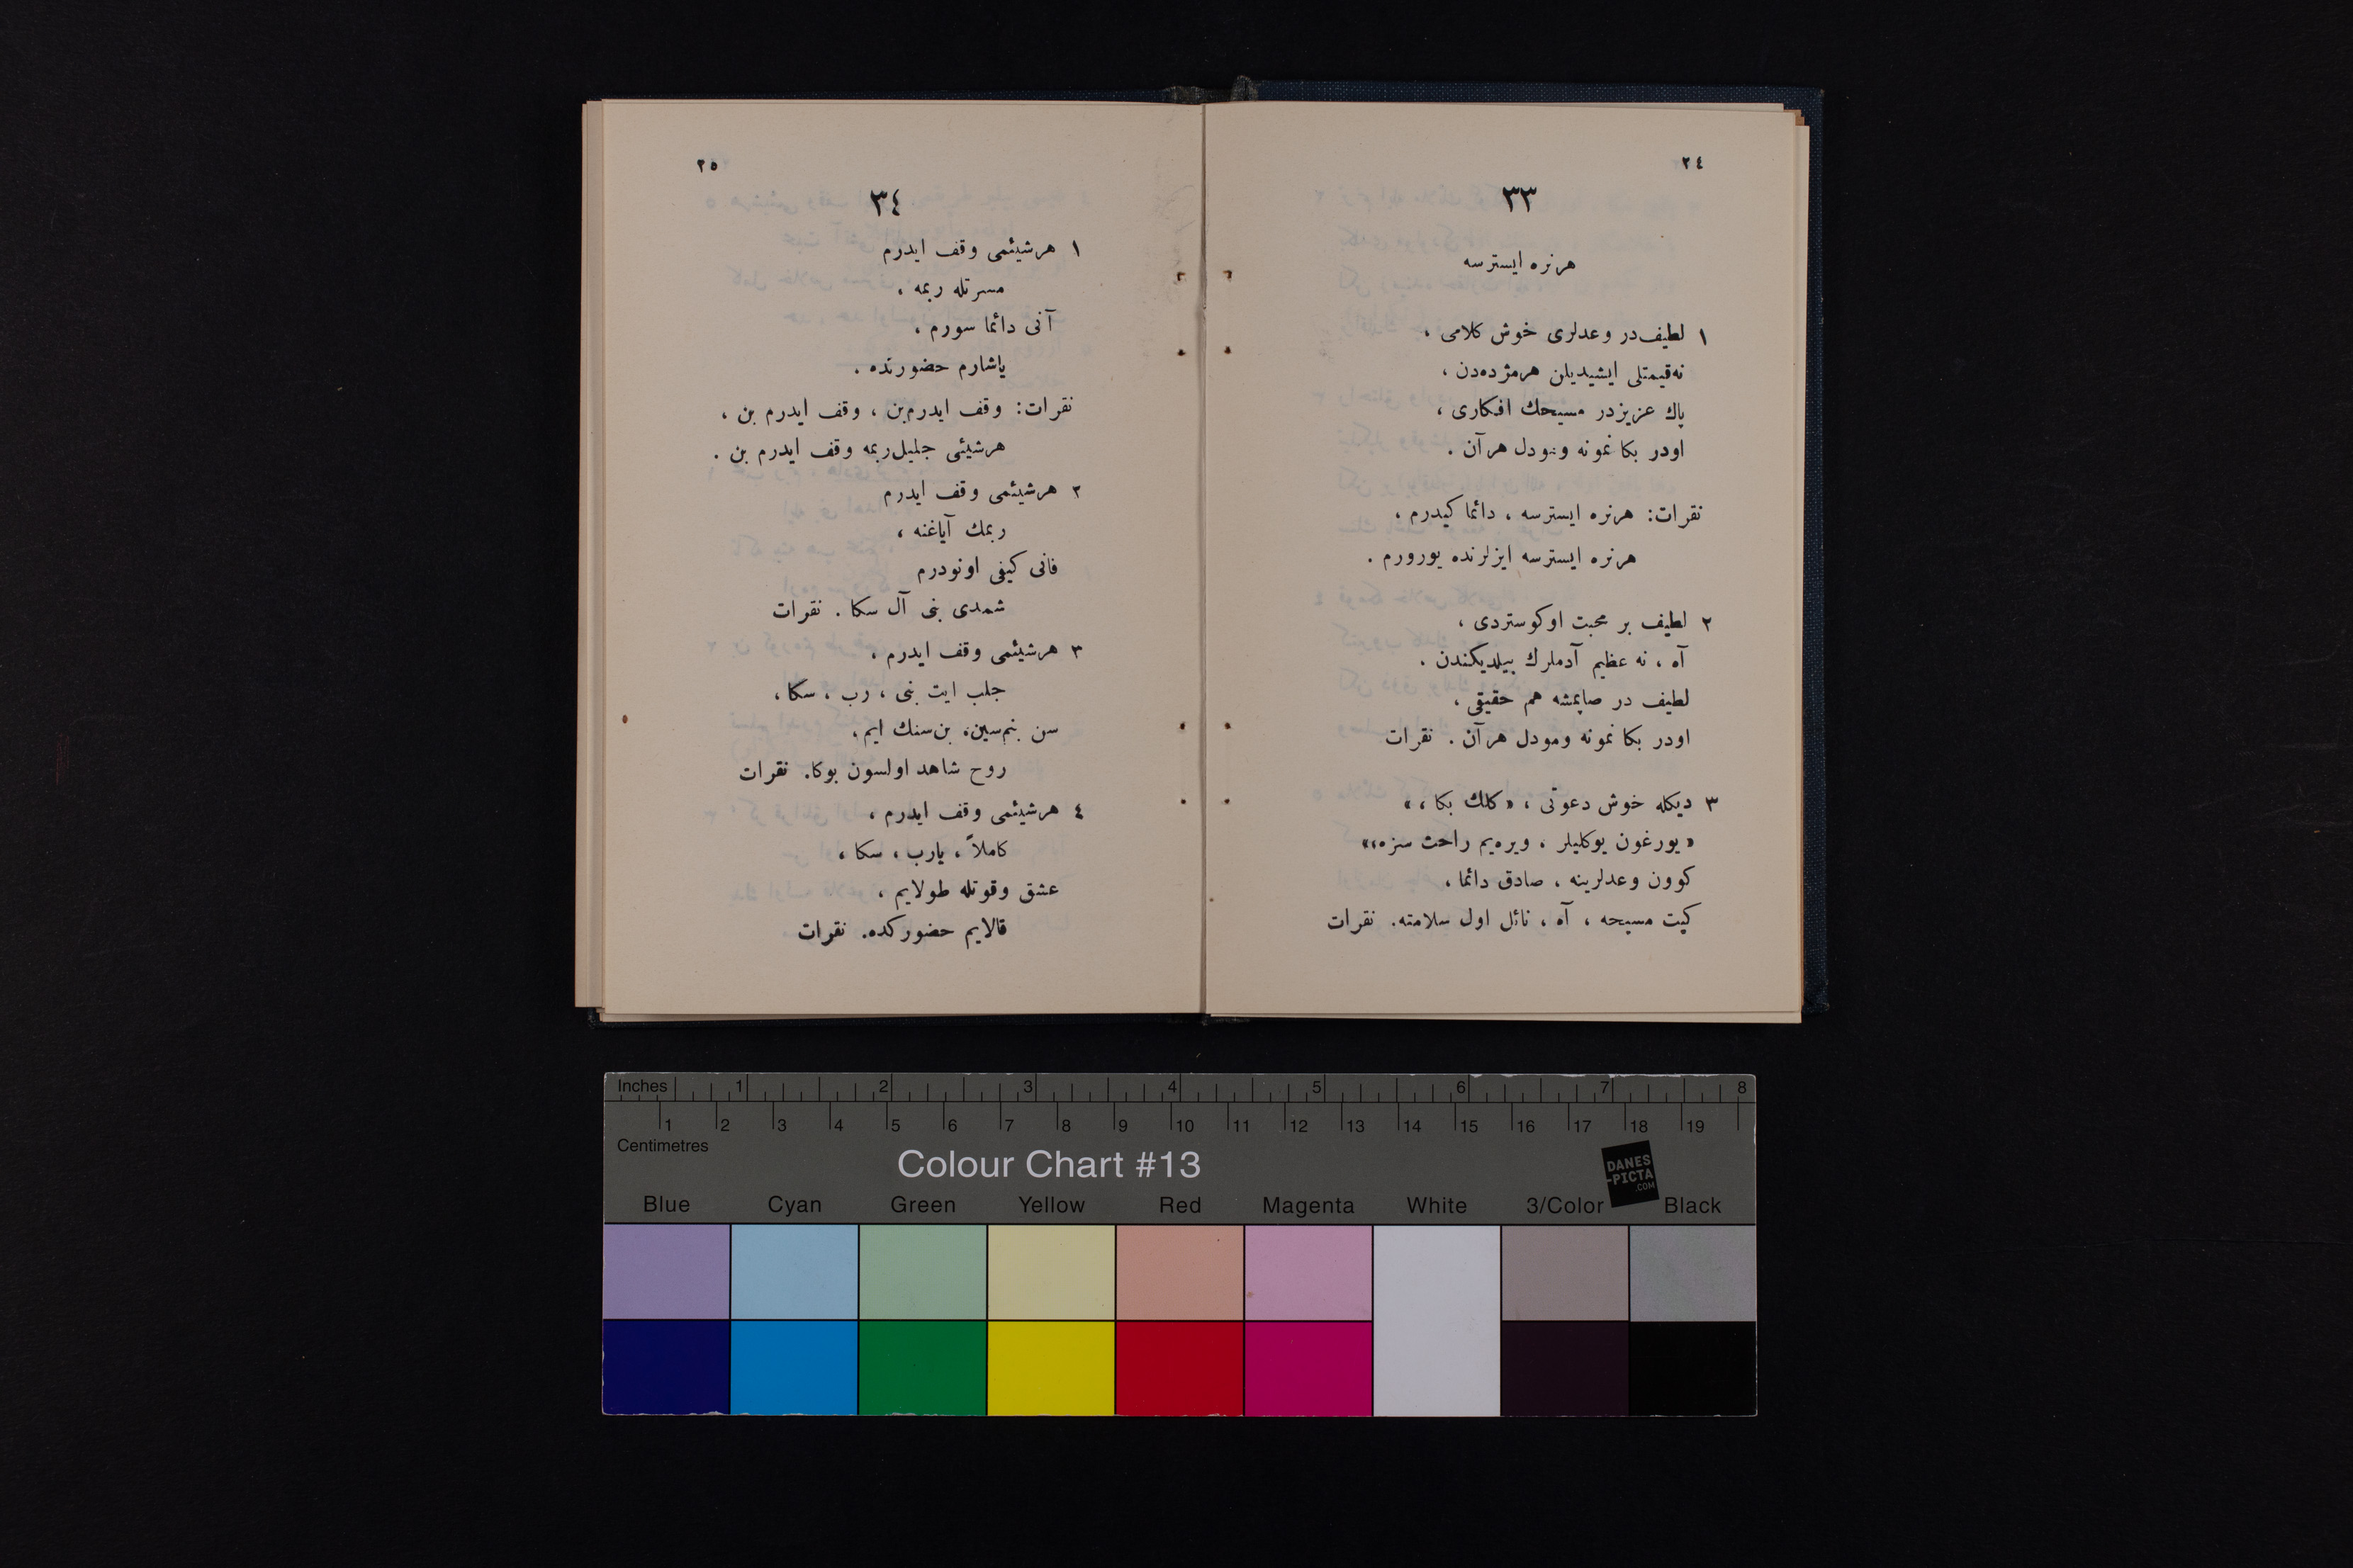 ٢٤
٣٣
هرنره ایسترسه
١ لطیف‌در وعدلری خوش کلامی ،
نه‌قیمتلی ایشیدیلن هرمژده‌دن ،
پاك عزیزدر مسیحك افکاری ،
اودر بکا نمونه ومودل هرآن .
نقرات: هرنره ایسترسه ، دائما کیدرم ،
هرنره ایسترسه ایزلرنده یورورم .
٢ لطیف بر محبت اوکوستردی ،
آه ، نه عظیم آدملرك بیلدیکندن .
لطیف در صاپمشه هم حقیقی ،
اودر بکا نمونه ومودل هرآن . نقرات
٣ دیکله خوش دعوتی ، «کلك بکا ،»
« یورغون یوکلیلر ، ویره‌یم راحت سزه،»
کوون وعدلرینه ، صادق دائما ،
کیت مسیحه ، آه ، نائل اول سلامته. نقرات
٢٥
٣٤
١ هرشیئمی وقف ایدرم
مسرتله ربمه ،
آنی دائما سورم ،
یاشارم حضورنده .
نقرات: وقف ایدرم‌بن ، وقف ایدرم بن ،
هرشیئی جلیل‌ربمه وقف ایدرم بن .
٢ هرشیئمی وقف ایدرم
ربمك آیاغنه ،
فانی کیفی اونودرم
شمدی بنی آل سکا . نقرات
٣ هرشیئمی وقف ایدرم ،
جلب ایت بنی ، رب ، سکا ،
سن بنم‌سین، بن‌سنك ایم ،
روح شاهد اولسون بوکا. نقرات
٤ هرشیئمی وقف ایدرم ،
کاملاً ، یارب ، سکا ،
عشق وقوتله طولایم ،
قالایم حضورکده. نقرات
Inches 1 2 3 4 5 6 7 8
1 2 3 4 5 6 7 8 9 10 11 12 13 14 15 16 17 18 19
Centimetres
Colour Chart #13
DANES
-PICTA
.COM
Blue Cyan Green Yellow Red Magenta White 3/Color Black